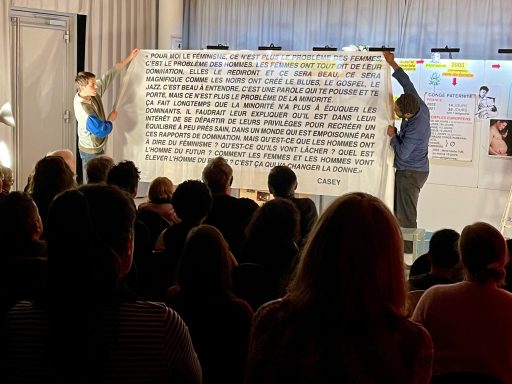 « POUR MOI LE FÉMINISME, CE N'EST PLUS LE PROBLÈME DES FEMMES,
C'EST LE PROBLÈME DES HOMMES. LES FEMMES ONT TOUT DIT DE LEUR
DOMINATION, ELLES LE REDIRONT ET CE SERA BEAU, CE SERA
MAGNIFIQUE COMME LES NOIRS ONT CRÉÉ LE BLUES, LE GOSPEL, LE
JAZZ, C'EST BEAU À ENTENDRE, C'EST UNE PAROLE QUI TE POUSSE ET TE
PORTE, MAIS CE N'EST PLUS LE PROBLÈME DE LA MINORITÉ.
ÇA FAIT LONGTEMPS QUE LA MINORITÉ N'A PLUS À ÉDUQUER LES
DOMINANTS. IL FAUDRAIT LEUR EXPLIQUER QU'IL EST DANS LEUR
INTÉRÊT DE SE DÉPARTIR DE LEURS PRIVILÈGES POUR RECRÉER UN
ÉQUILIBRE À PEU PRÈS SAIN, DANS UN MONDE QUI EST EMPOISONNÉ PAR
CES RAPPORTS DE DOMINATION. MAIS QU'EST-CE QUE LES HOMMES ONT
À DIRE DU FÉMINISME ? QU'EST-CE QU'ILS VONT LÂCHER ? QUEL EST
L'HOMME DU FUTUR ? COMMENT LES FEMMES ET LES HOMMES VONT
ÉLEVER L'HOMME DU C'EST ÇA QUI VA CHANGER LA DONNE. »
CASEY
2005
CONGÉ PATERNITÉ